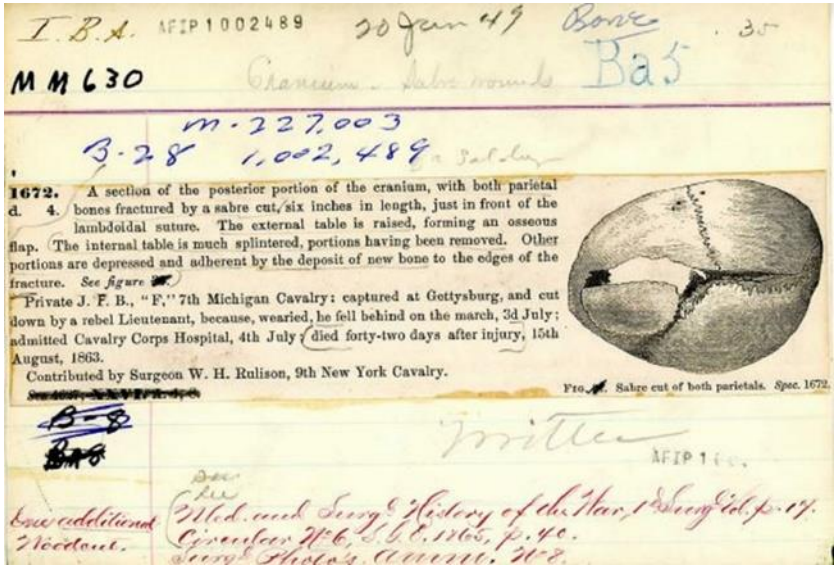 I.B.A. AFIP 1002489 20 Jan 49 Bone . 35
MM630 Cranium - Sabre wounds Ba5
M-227,003
B-28 1,002,489
1672. A section of the posterior portion of the cranium, with both parietal
d. 4. bones fractured by a sabre cut, six inches in length, just in front of the
lambdoidal suture. The external table is raised, forming an osseous
flap. The internal table is much splintered, portions having been removed. Other
portions are depressed and adherent by the deposit of new bone to the edges of the
fracture. See figure
Private J. F. B., "F," 7th Michigan Cavalry: captured at Gettysburg, and cut
down by a rebel Lieutenant, because, wearied, he fell behind on the march, 3d July;
admitted Cavalry Corps Hospital, 4th July; died forty-two days after injury, 15th
August, 1863.
Contributed by Surgeon W. H. Rulison, 9th New York Cavalry.
FIG. Sabre cut of both parietals. Spec. 1672.
B-8
Written
AFIP 1
see
One additional Med. and Surgl. History of the War, 1st Surgl. Vol. p. 17.
Woodcut. Circular No 6, S.G.O. 1865, p. 40.
Surgl. Photos. No 8.